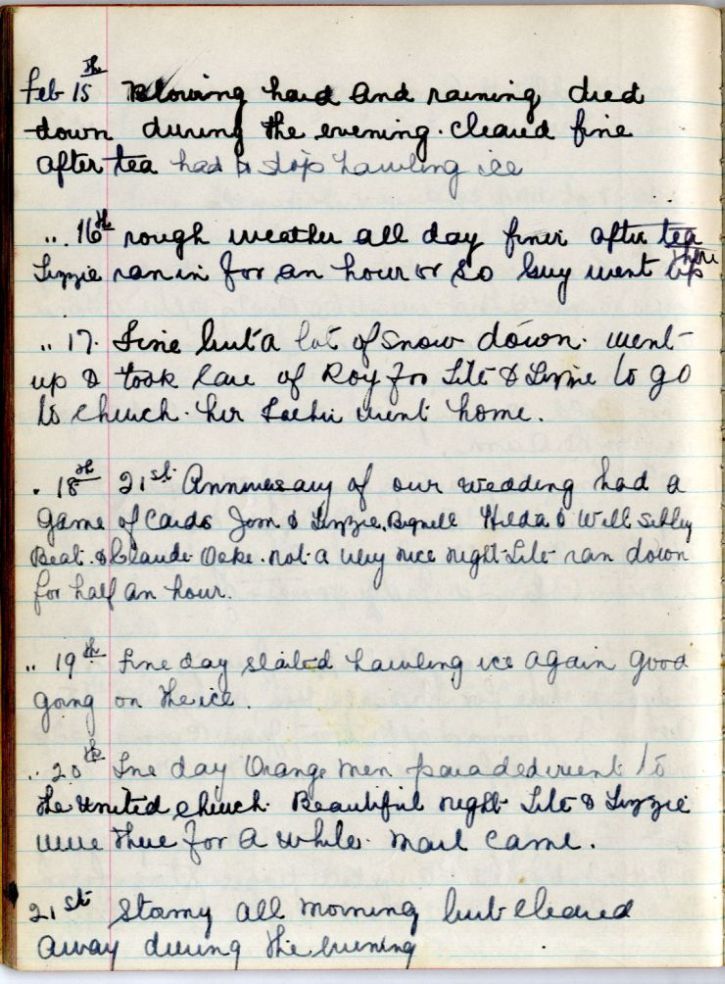 Feb 15th Blowing hard and raining died
down during the evening. cleared fine
after tea had to stop hawling ice
" 16th rough weather all day finer after tea
Lizzie ran in for an hour or so Guy went up there
" 17. Fine but a lot of snow down. went
up & took care of Roy for Lite & Lizzie to go
to church. her Father went home.
" 18th 21st Anniversary of our wedding had a
game of cards Jom & Lizzie, Bignell Hilda & Will Sibley
Beat. & Claude Oake. not a very nice night Lite ran down
for half an hour.
" 19th Fine day started hawling ice again good
going on the ice.
" 20th Fine day Orange men paraded went to
the United church. Beautiful night Lite & Lizzie
were there for a while. mail came.
21st Stormy all morning but cleared
away during the evening